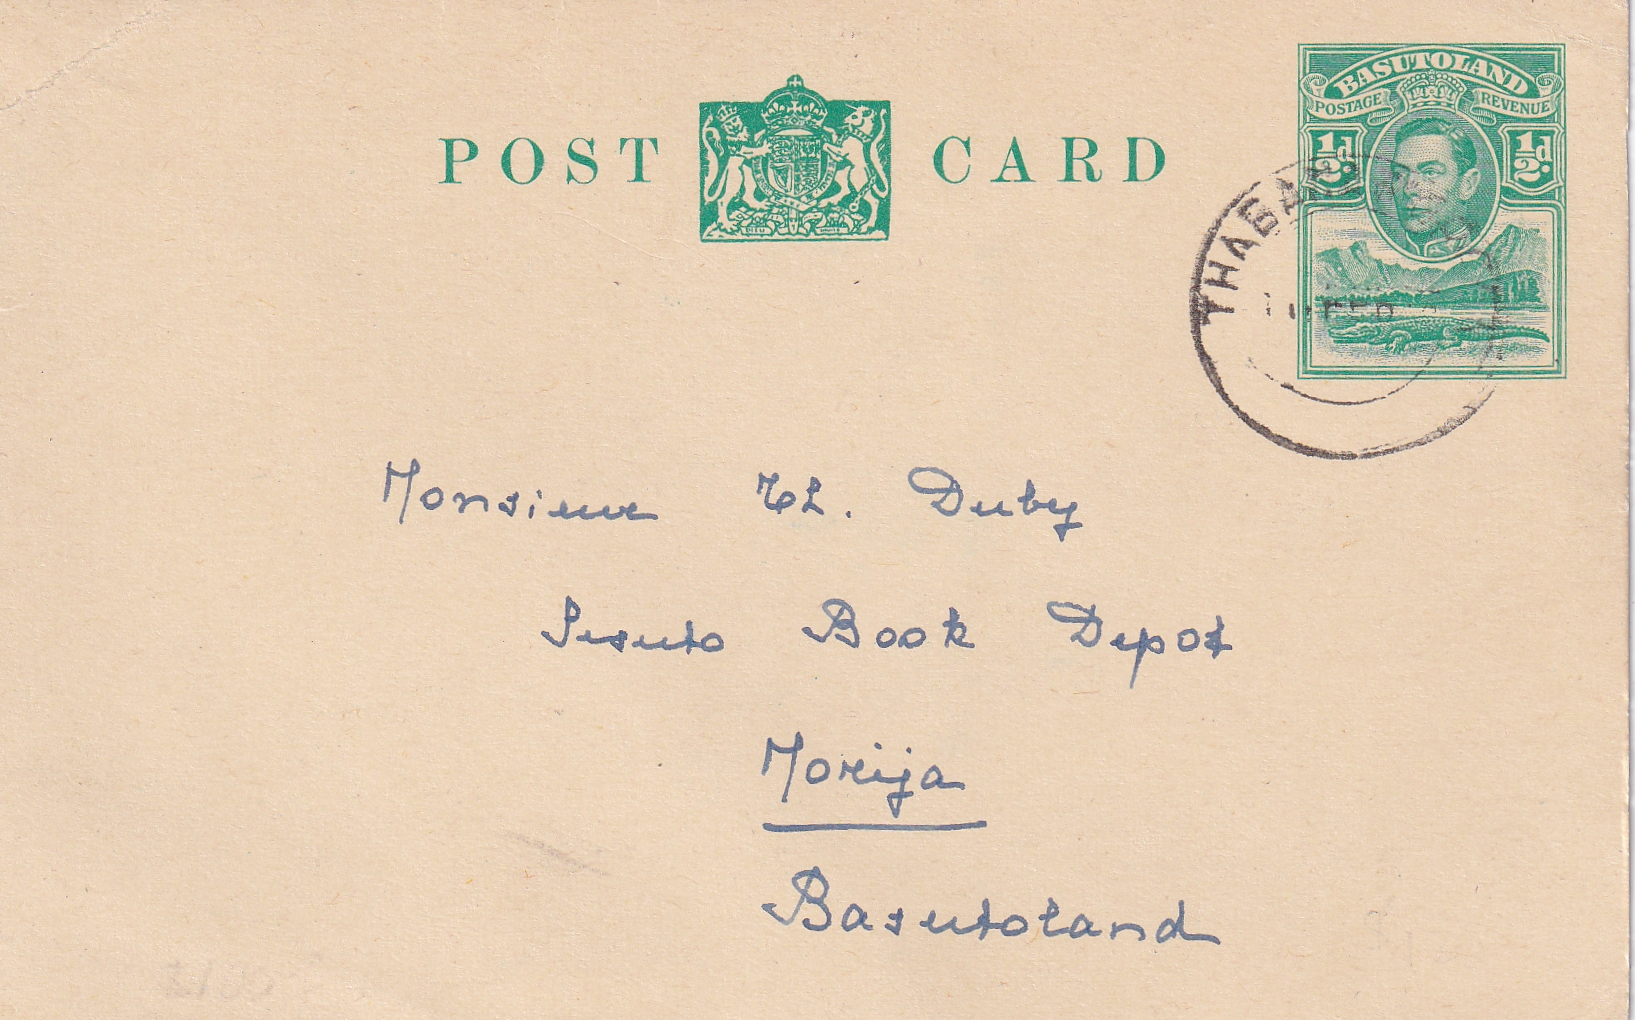 BASUTOLAND
POSTAGE REVENUE
½d. ½d.
POST CARD
FEB
Monsieur Th. Duby
Sesuto Book Depot
Morija
Basutoland